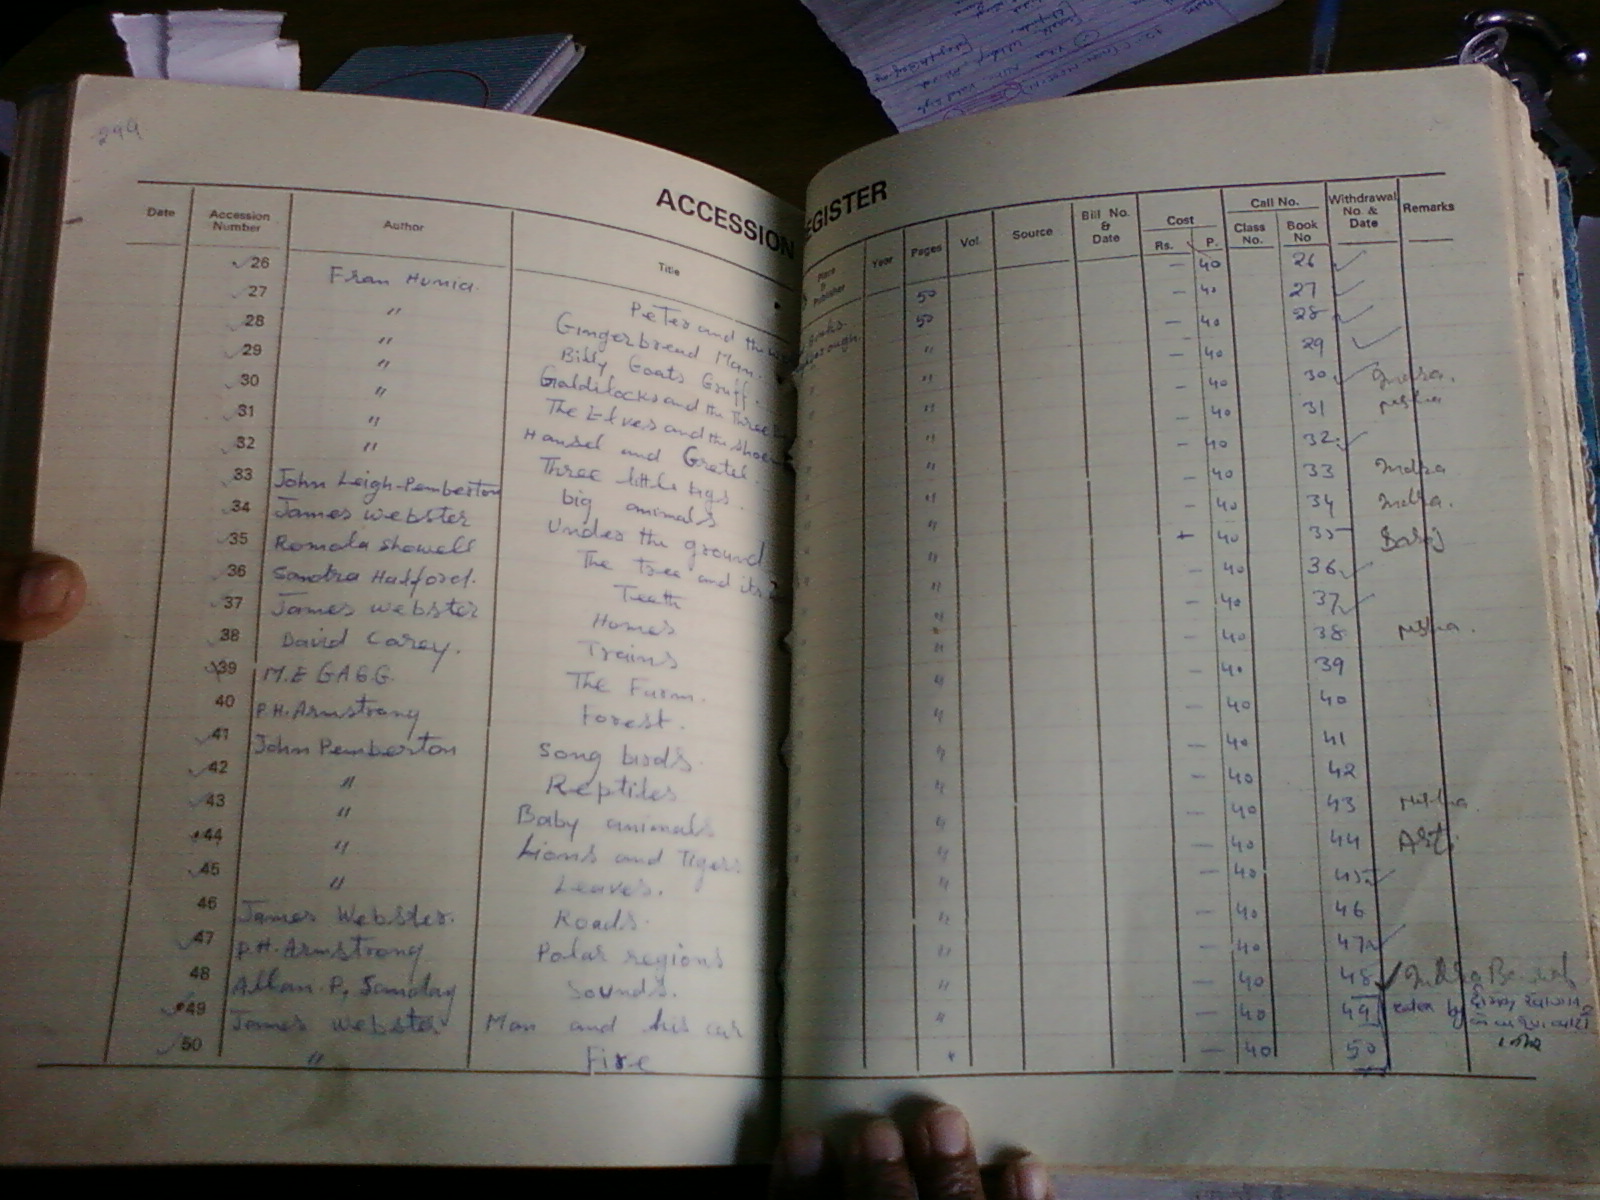 299
ACCESSION REGISTER
Date Accession Number Author Title Place & Publisher Year Pages Vol. Source Bill No. & Date Cost Rs. P. Call No. Class No. Book No Withdrawal No. & Date Remarks
26 Fran Hunia. Peter and the 50 — 40 26
27 " Gingerbread Man. 50 — 40 27
28 " Billy Goats Gruff. " — 40 28
29 " Goldilocks and the Three " — 40 29
30 " The Elves and the Shoe " — 40 30 Indra.
31 " Hansel and Gretel. " — 40 31 Nisha
32 " Three little pigs. " — 40 32
33 John Leigh-Pemberton big animals " — 40 33 Indra
34 James Webster Under the ground " — 40 34 Indra.
35 Romola Showell The Tree and its " 40 35
36 Sandra Hafford. Teeth " — 40 36
37 James Webster Homes " — 40 37
38 David Carey. Trains " — 40 38 Nisha.
39 M.E GAGG. The Farm. " — 40 39
40 P.H. Armstrong Forest. " — 40 40
41 John Pemberton Song birds. " — 40 41
42 " Reptiles " — 40 42
43 " Baby animals " — 40 43 Nisha.
44 " Lions and Tigers " — 40 44
45 " Leaves. " — 40 45
46 James Webster. Roads. " — 40 46
47 P.H. Armstrong Polar regions " — 40 47
48 Allan. P. Sanday Sounds. " — 40 48 Indra
49 James Webster Man and his car " — 40 49 by
50 " Fire " — 40 50